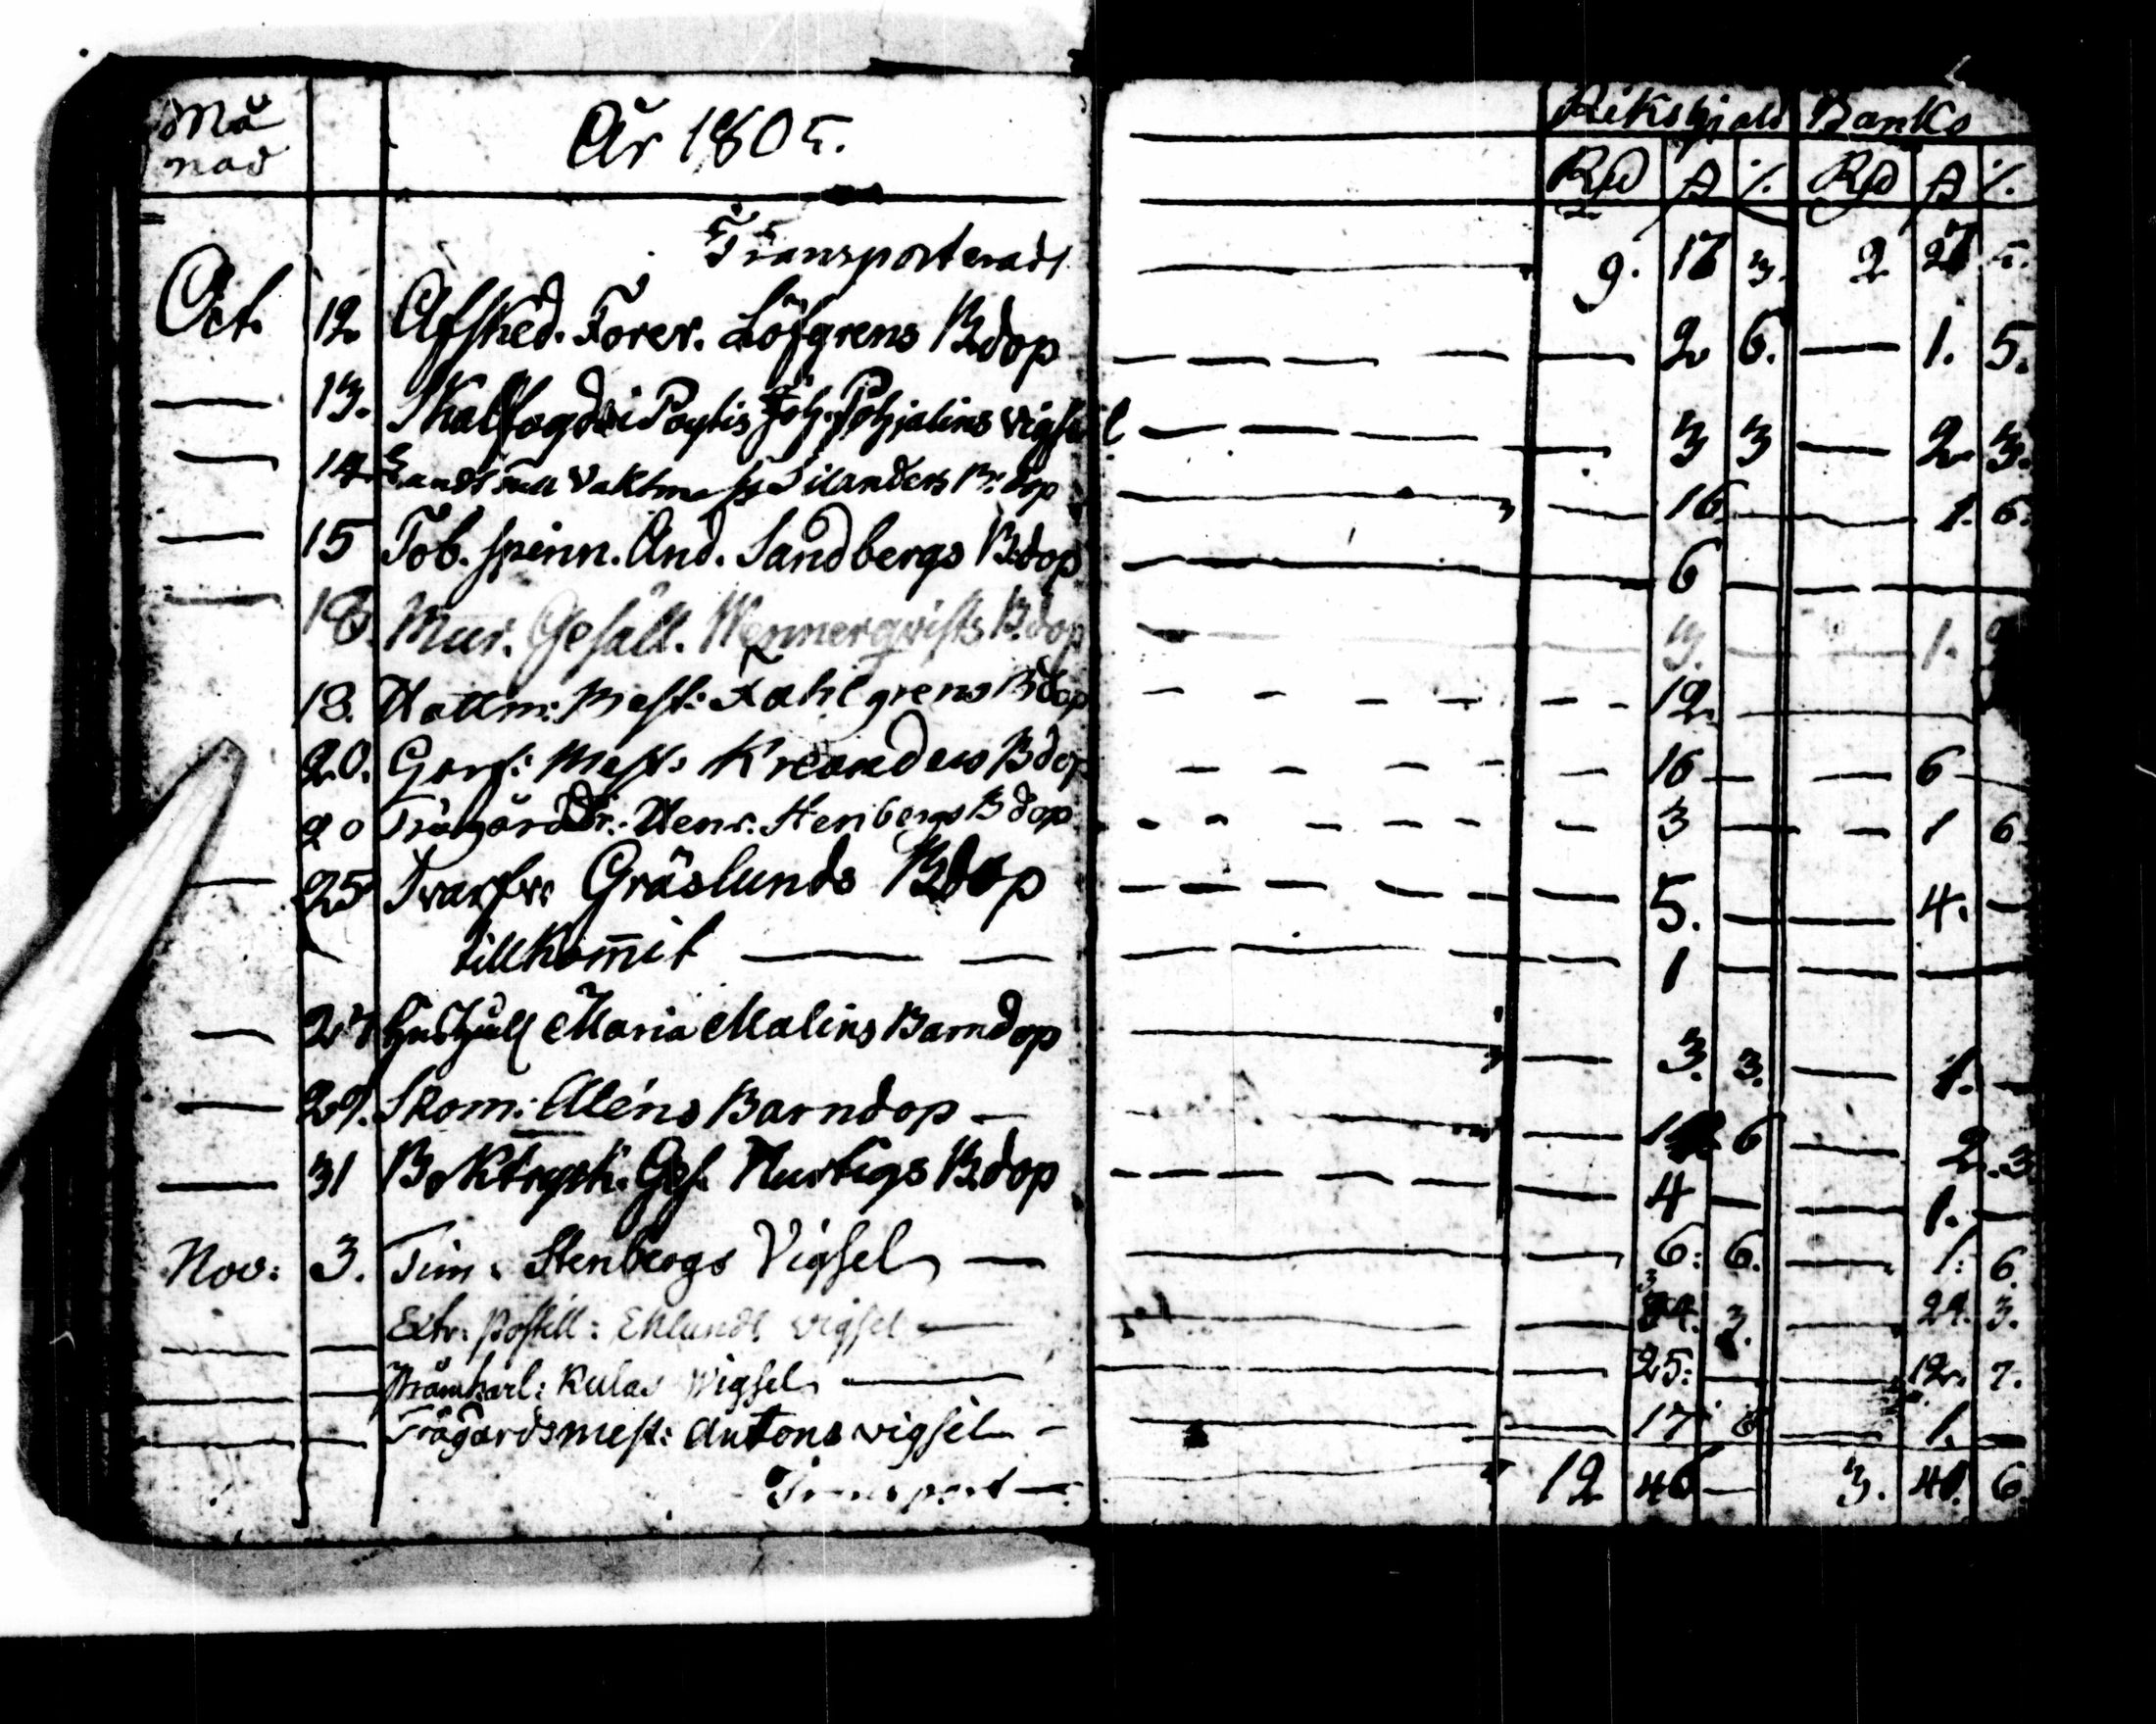 Må
nad
År 1805.
Riksgjald Banko
Rd ß /. Rd ß /.
Transporteradt 9. 17 3. 2 27 5.
Oct. 12 Afsked. Förer. Löfgrens B.dop — 2 6. — 1. 5.
— 13. i Poytis Joh. Pohjalins vigsel — 3 3 — 2. 3.
— 14. Silanders B:dop — 16. — 1. 6.
— 15 Tob. spinn. And. Sandbergs B.dop — 6 — — —
— 18. Mur. Gesäll. Wennerqvists B.dop — 3. — 1.
18. Hattm: Mest: Fahlgrens Bdop — 12. —
20. Garf: Mest: Kreanders Bdop — 16 — — 6 —
20 Trägårdsdr. Henr. Stenbergs Bdop — 3 — — 1 6
— 25 Svarfv: Gräslunds Bdop — 5. — — 4. —
tillkom̄it — 1 — — — —
— 27 Hushjelp Maria Malins Barndop — 3. 3. — 1. —
— 29. Skom: Aléns Barndop — 6 — 2. 3
— 31 Boktryck. Ges. Hurtigs B.dop — 4 — — 1. —
Nov: 3. Tim: Stenbergs Vigsel — 6: 6. — 1: 6.
— — Extr: postill: Eklunds vigsel — 3. — 24. 3.
— — Pråmkarl: Kulas Wigsel — 25: — — 12. 7.
— — Trägårdsmest: Antons vigsel — 17 6 — 1. —
Transport — 12 46 — 3. 41. 6